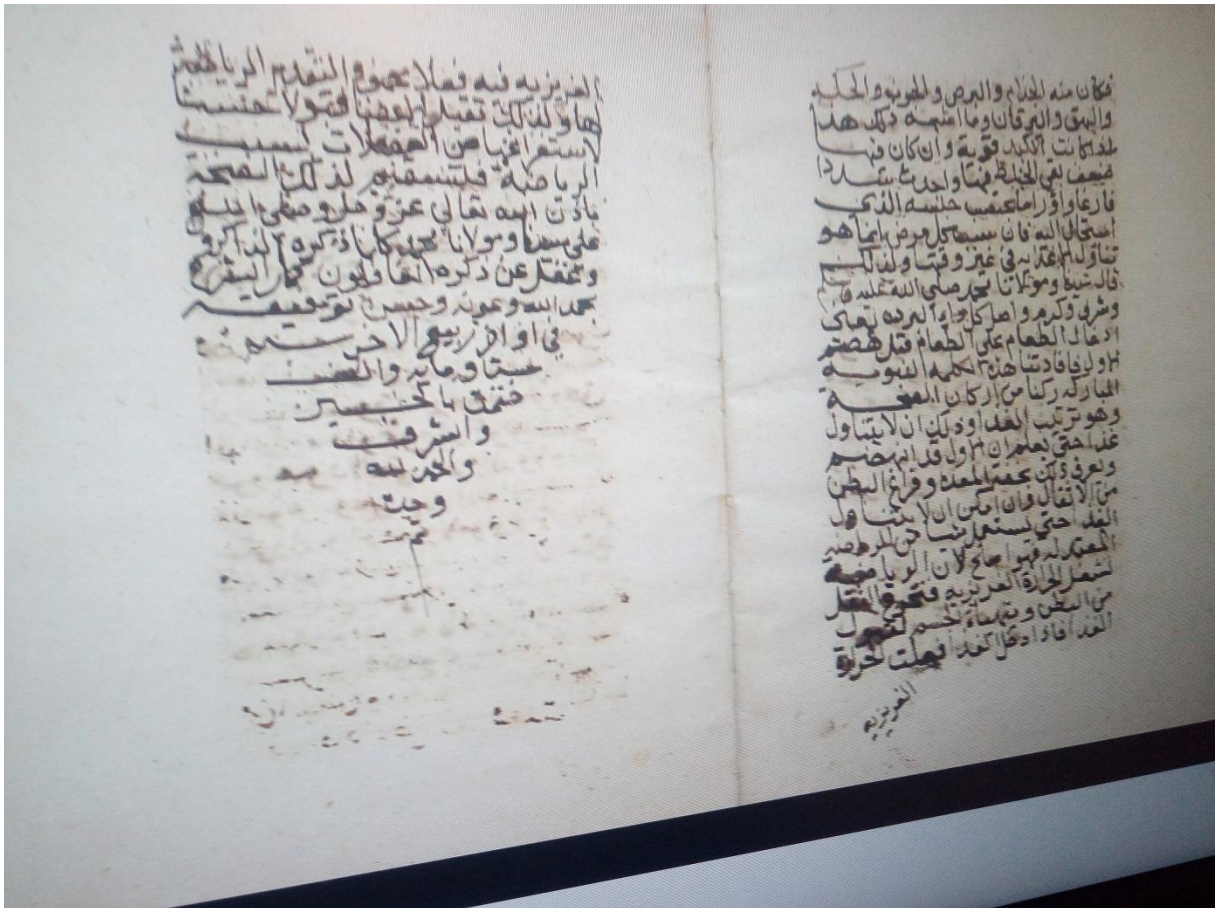 فكان منه الجذام والبرص والجربه والحكه
والبهق واليرقان وما اشبه ذلك هذا
اذا كانت الكبد قوية وان كان فيها
ضعف بقي الخلط فيها واحدث سددا
فارغا واوراما عقيب جنسه الذي
استحال اليه فان سبب كل مرض انما هو
تناول الاغذيه في غير وقتها ولذلك
قال سيدنا ومولانا محمد صلى الله عليه وسلم
وشرف وكرم واصل كل داء البرده يعني
ادخال الطعام على الطعام قبل هضم
الاول فافادتنا هذه الكلمه النبويه
المباركه ركنا من اركان الصحة
وهو ترتيب الغدا وذلك ان لا يتناول
غدا حتى يعلم ان الاول قد انهضم
ويعرف ذلك بخفة المعده وفراغ البطن
من الاثقال وان امكن ان لا يتناول
الغدا حتى يستعمل شيا من الرياضه
المعتدله فهوا صالح لان الرياضه
تشعل الحرارة الغريزيه فتحرق الثقل
من البطن وتهيأة الجسم لقبول
الغدا فاذا دخل الغدا فعلت الحرارة
الغريزيه
الغريزيه فيه فعلا بمعونة التقديم الرياضة
لها ولذلك تقبل الاعضا قبولا حسنا
لاستفراغها من الفضلات بسبب
الرياضة فتستقيم لذلك الصحة
باذن الله تعالى عز وجل وصلى الله
على سيدنا ومولانا محمد كلما ذكره الذاكرون
وغفل عن ذكره الغافلون كمل
بحمد الله وعونه وحسن توفيقه
في اواخر ربيع الاخر سنة
ومايه والف
بالحسين
والشرف
والحمد لله
وحده
تم